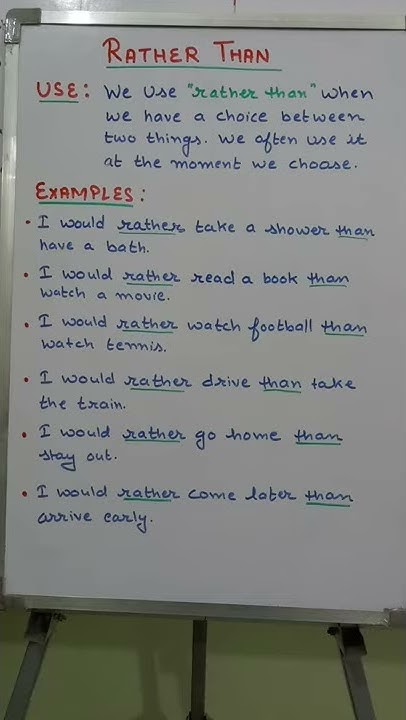 RATHER THAN
USE: We use "rather than" when
we have a choice between
two things. We often use it
at the moment we choose.
EXAMPLES:
• I would rather take a shower than
have a bath.
• I would rather read a book than
watch a movie.
• I would rather watch football than
watch tennis.
• I would rather drive than take
the train.
• I would rather go home than
stay out.
• I would rather come later than
arrive early.